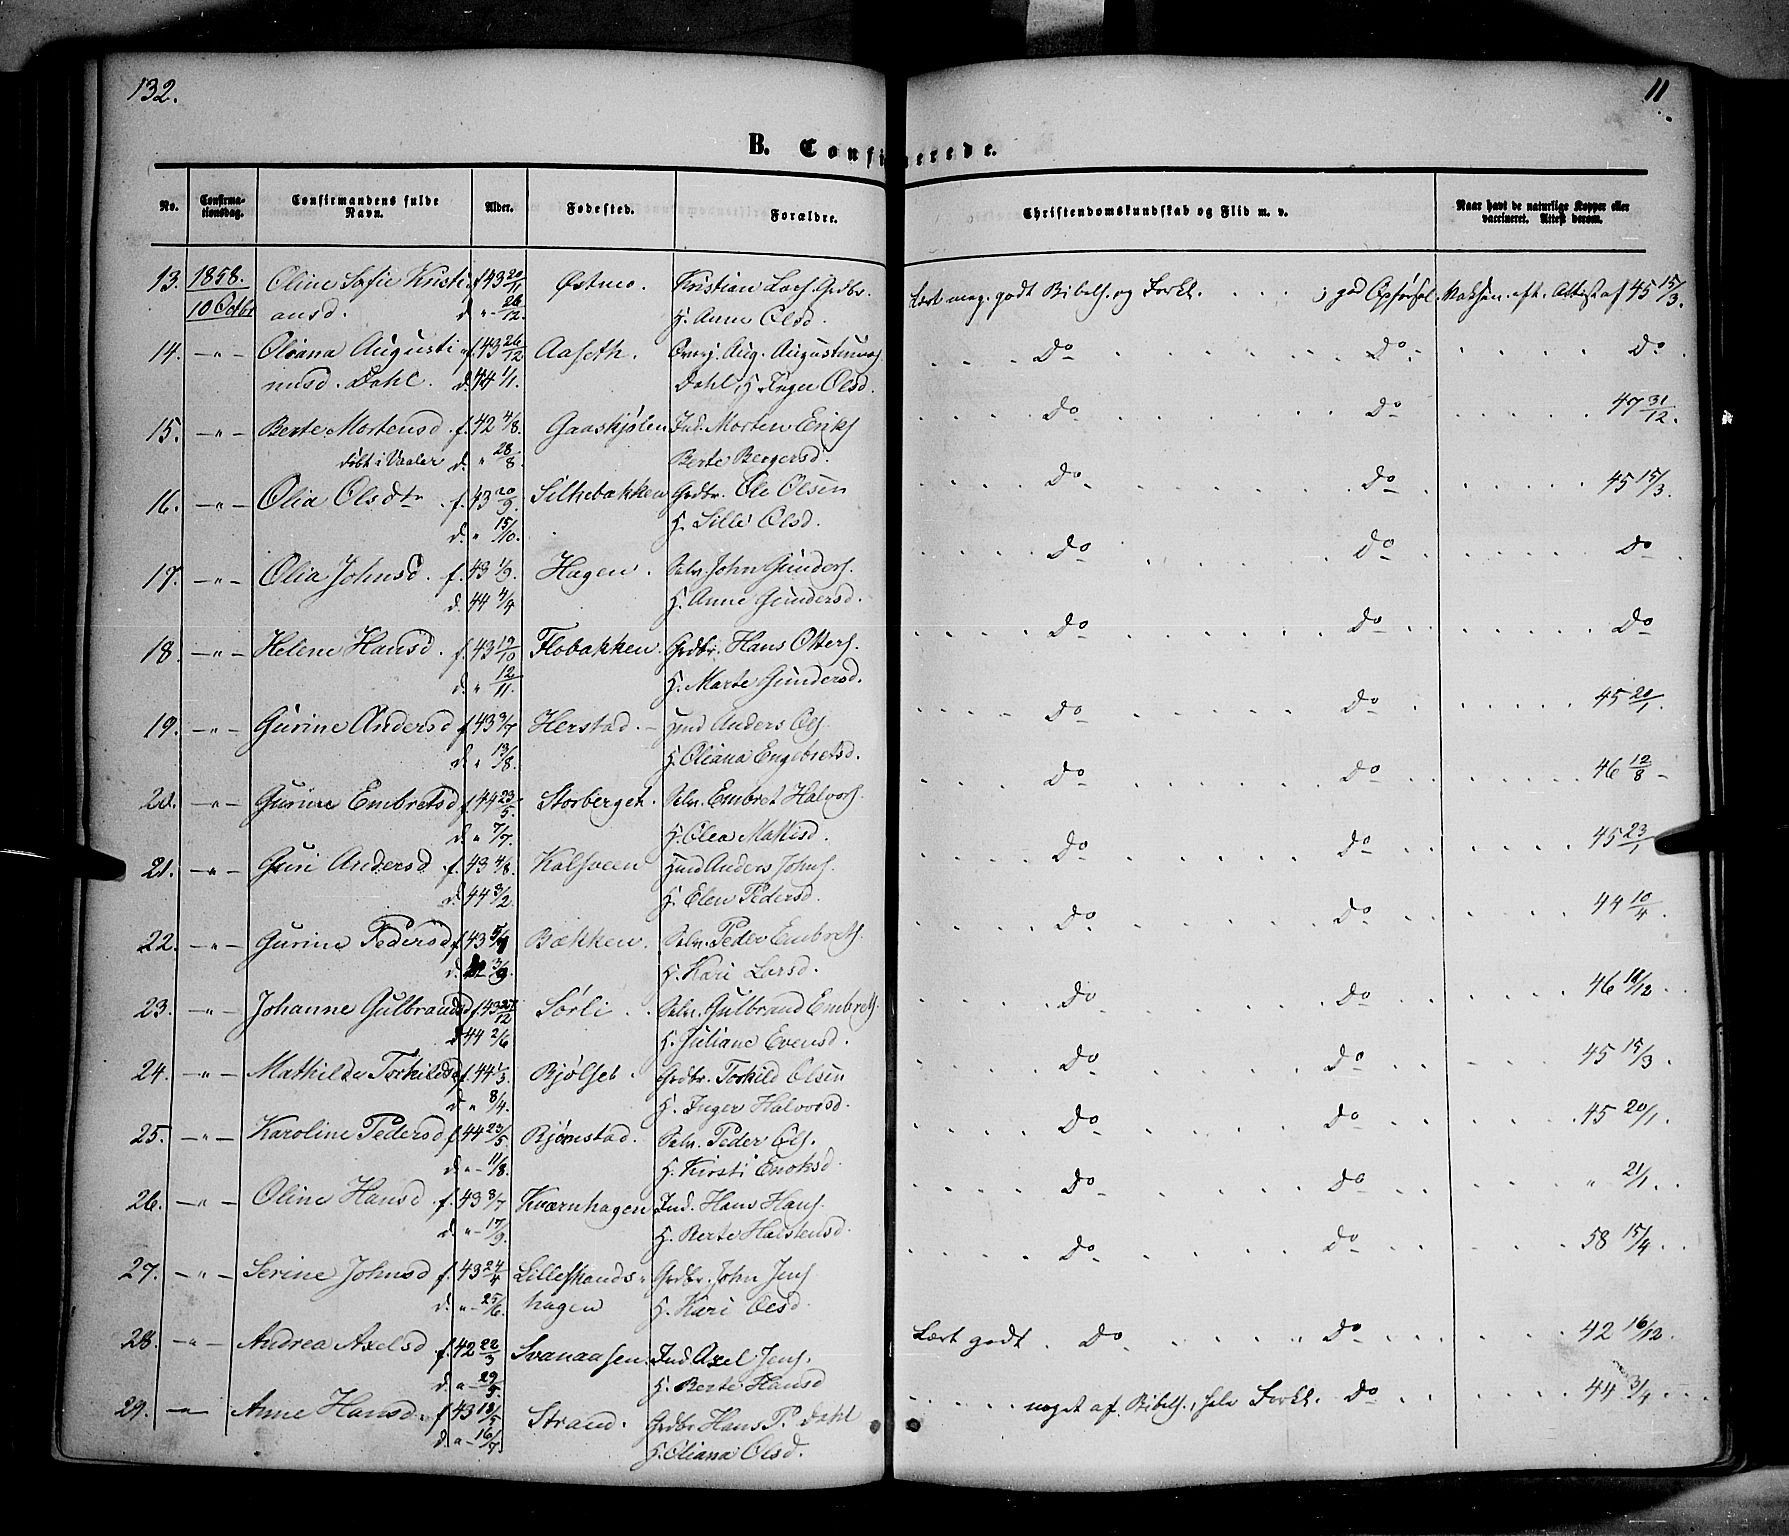 132.
11.
B. Confirmerede.
No. Confirma-tionsdag. Confirmandens fulde Navn. Alder. Fødested. Forældre. Christendomskundskab og Flid m. v. Naar havt de naturlige Kopper eller vaccineret. Attest derom.
13. 1858. Oline Sofie Kristi- f. 43 20/11 Østmo. Kristian Lars. Grdbr. Lært meg. godt Bibelh. og Forkl. . . . ; god Opførsel. Vaksen. eft. Attest af 45 15/3.
10 Octbr ansd. d. " 26/12. H. Anne Olsd.
14. -"- Oleana Augusti- f. 43 26/12 Aaseth. Aug. Augustinus. Do Do Do
nusd. Dahl. d. 44 1/1. Dahl, H. Inger Olsd.
15. -"- Berte Mortensd. f. 42 4/8. Gaaskjølen Ind. Morten Eriks. Do Do 47 31/12.
døbt i Vaaler d. " 28/8. Berte Bergersd.
16. -"- Olia Olsdtr. f. 43 20/9. Silkebakken Grdbr. Ole Olsen Do Do 45 15/3.
d. " 15/10. H. Lille Olsd.
17. -"- Olia Johnsd. f. 43 1/9. Hagen. Selv. John Gunders. Do Do Do
d. 44 4/4 H. Anne Gundersd.
18. -"- Helene Hansd. f. 43 12/10 Flobakken. Grdbr. Hans Otters. Do Do Do
d. " 12/11. H. Marte Gundersd.
19. -"- Gurine Andersd f. 43 3/7 Herstad. Hmd Anders Ols. Do Do 45 20/1
d. " 13/8. H. Oliana Engebretsd.
20. -"- Gurine Embretsd f. 44 23/5. Storberget. Selv. Embret Halvors. Do Do 46 12/8
d. " 7/7. H. Olea Mattisd.
21. -"- Guri Andersd. f. 43 4/8. Kalsveen Hmd Anders Johns. Do Do 45 23/1
d. 44 3/2. H. Elen Pedersd.
22. -"- Gurine Pedersd f. 43 Bækken. Selv. Peder Embrets. Do Do 44 10/4.
d. 3/9. H. Kari Larsd.
23. -"- Johanne Gulbrandsd f. 43 27/12 Sørli. Selv. Gulbrand Embrets. Do Do 46 11/12
d. 44 2/6 H. Juliane Evensd.
24. -"- Mathilde Torkildsd. f. 44 1/3. Bjølset. Grdbr. Torkild Olsen Do Do 45 15/3.
d. " 8/4. H. Inger Halvorsd.
25. -"- Karoline Pedersd f. 44 23/5 Bjørnstad. Selv. Peder Ols. Do Do 45 20/1.
d. " 11/8. H. Kirsti Enoksd.
26. -"- Oline Hansd f. 43 3/7 Kværnhagen Ind. Hans Hans. Do Do " 21/1.
d. " 17/9. H. Berte Halstensd.
27. -"- Serine Johnsd f. 43 24/4 Lillestrands- Grdbr. John Jens. Do Do 58 15/4.
d. " 25/6. hagen H. Kari Olsd.
28. -"- Andrea Axelsd f. 42 22/3 Svanaasen. Ind. Axel Jens. Lært godt. Do Do 42 16/12.
d. " 29/5. H. Berte Hansd
29. -"- Anne Hansd. f. 43 18/5 Strand. Grdbr Hans P. Dahl noget af. Bibelh., hele Forkl. Do 44 3/4
d. " 16/7 H. Oliana Olsd.